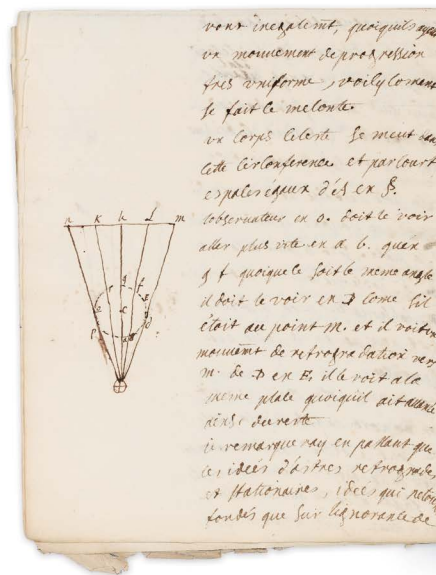 vont inegalemt, quoiquils ayent
un mouvement de progression
tres uniforme, voicy coment
se fait le meconte.
un corps celeste se meut dans
cette circonference et parcourt
espales égaux
n k h l m
l'observateur en o. doit le voir
aller plus vite en a b. quen
g f quoique ce soit le meme angle
il doit le voir en D come sil
étoit au point m. et il voit en
mouvemt de retrogradation vers
m. de D en E, il le voit a la
meme place quoiquil ait avancé
ainsi du reste
ie remarqueray en passant que
ces idées d'astres retrogrades
et stationaires, idées qui
fondés que sur lignorance de